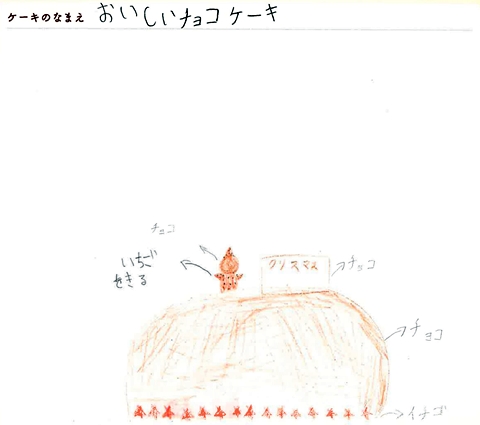 ケーキのなまえ おいしいチョコケーキ
チョコ
いちご
をきる
クリスマス
チョコ
チョコ
イチゴ